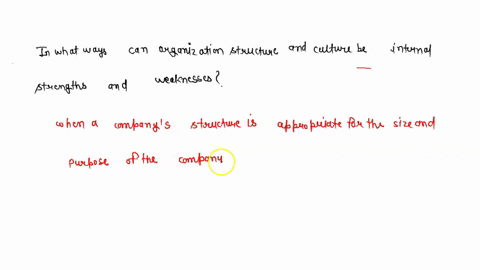 In what ways can organization structure and culture be internal
strengths and weaknesses?
when a company's structure is appropriate for the size and
purpose of the company